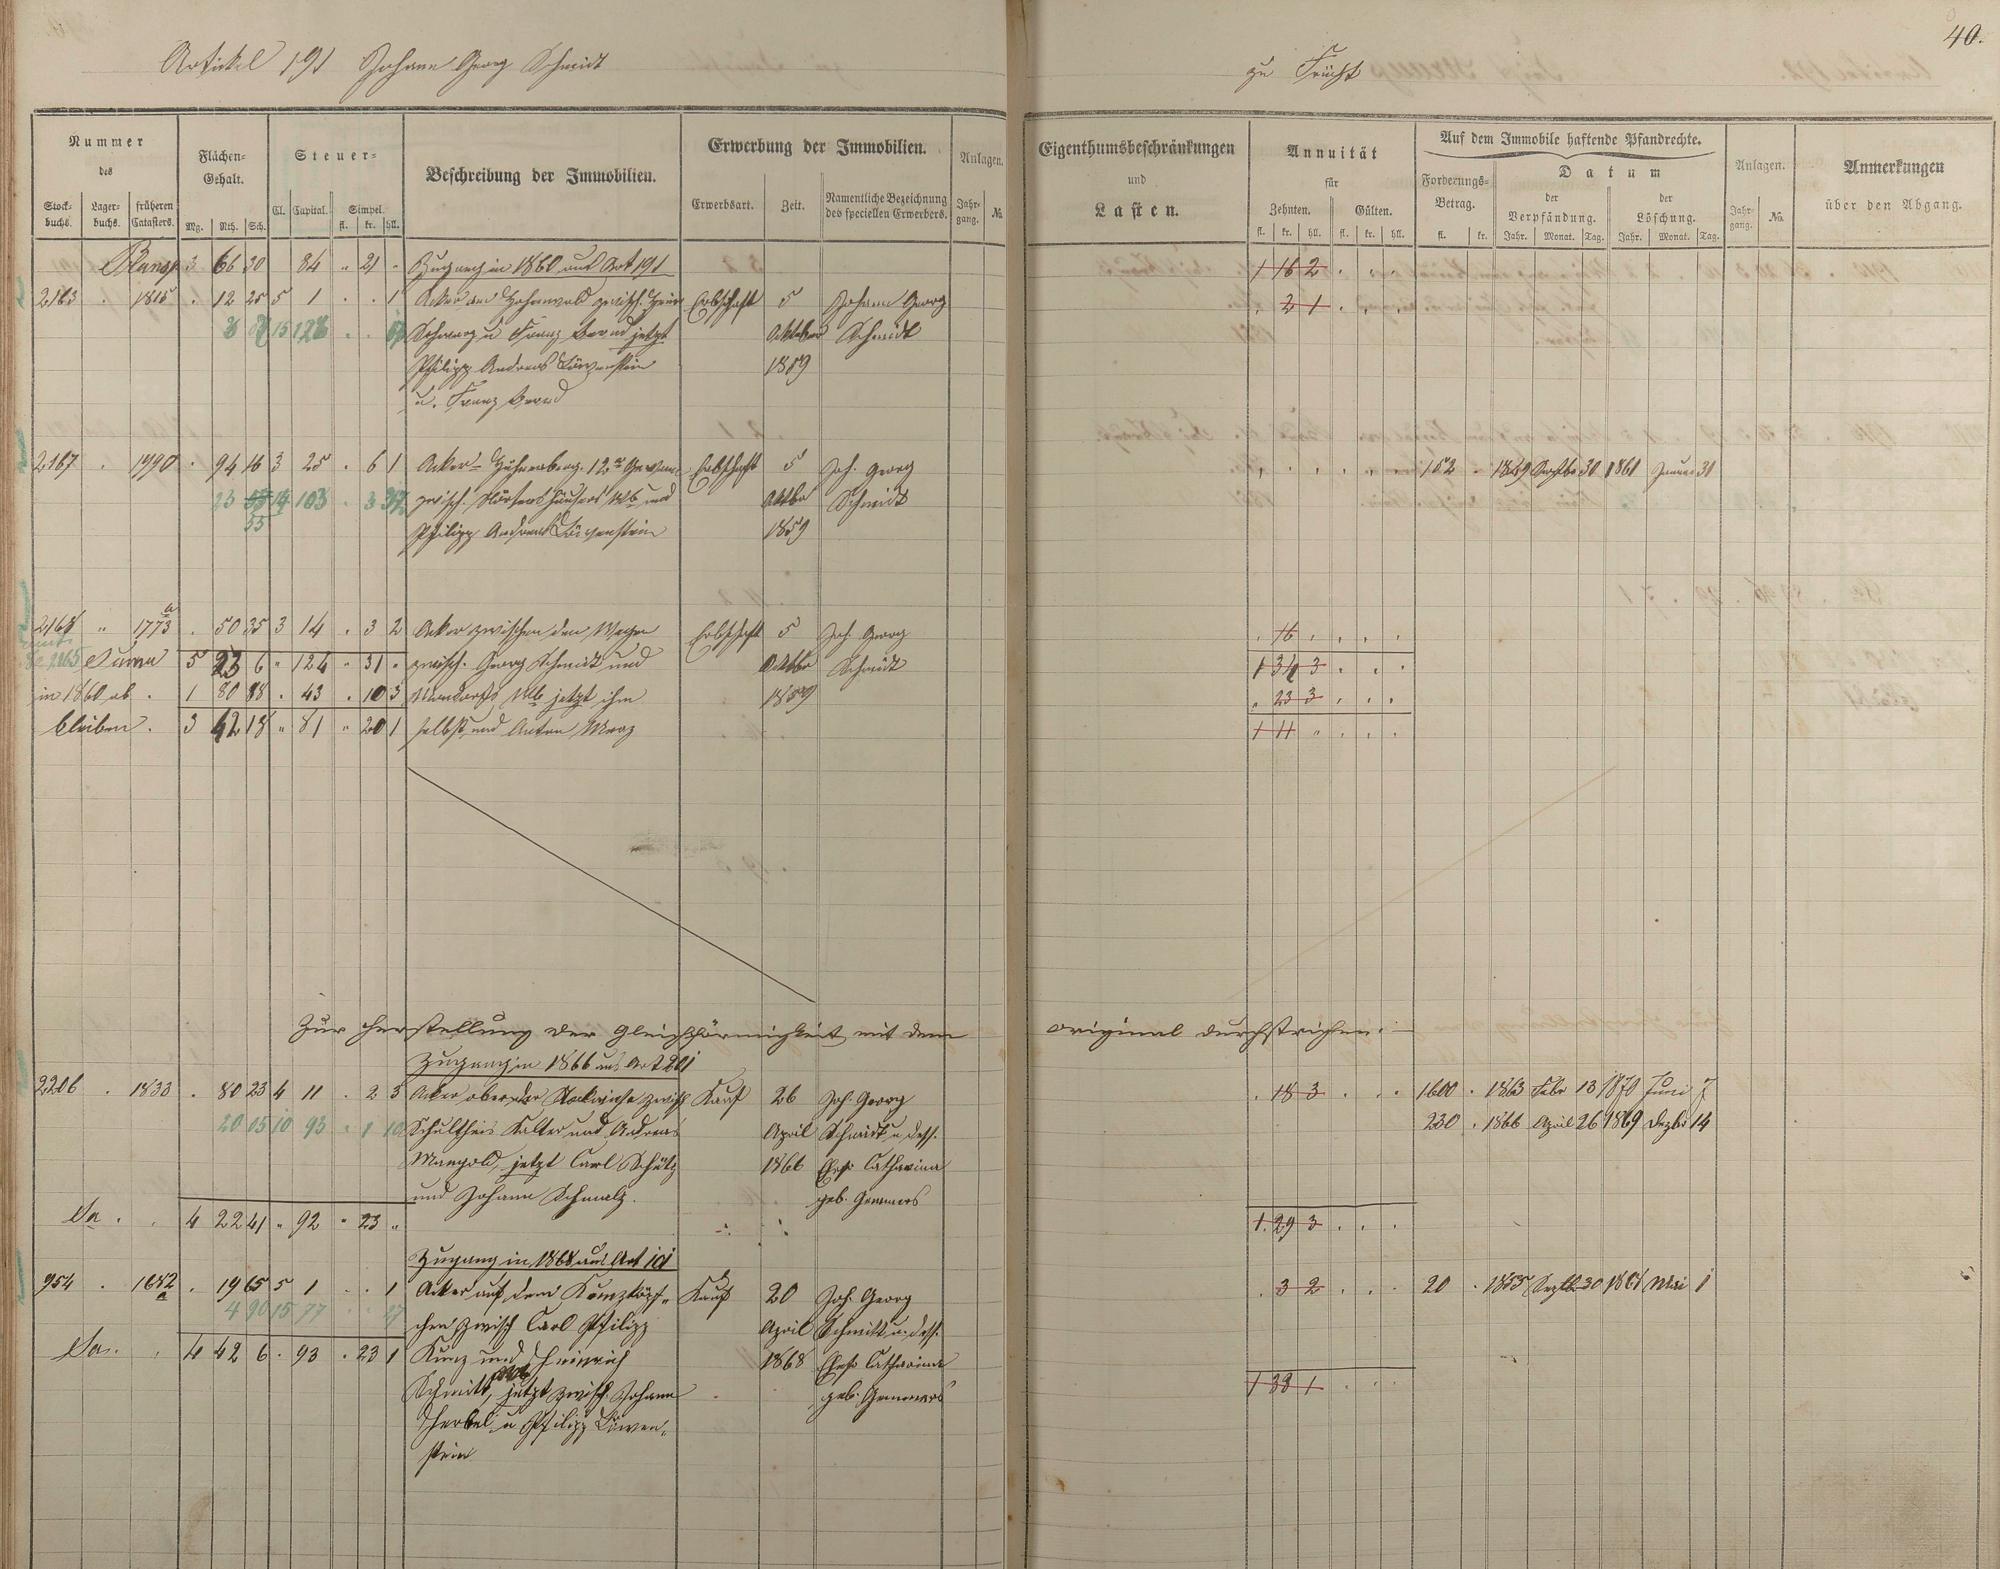 40.
Artikel 191 Johann Georg Schmidt
zu Frücht
Nummer
des
Stock-
buchs.
Lager-
buchs.
früheren
Catasters.
Flächen-
Gehalt.
Mg. Rth. Sch.
Steuer-
Cl. Capital. Simpel.
fl. kr. hll.
Beschreibung der Immobilien.
Erwerbung der Immobilien.
Erwerbsart. Zeit.
Namentliche Bezeichnung
des speciellen Erwerbers.
Anlagen.
Jahr-
gang. No.
Eigenthumsbeschränkungen
und
Lasten.
Annuität
für
Zehnten. Gülten.
fl. kr. hll. fl. kr. hll.
Auf dem Immobile haftende Pfandrechte.
Forderungs-
Betrag.
fl. kr.
Datum
der
Verpfändung.
Jahr. Monat. Tag.
der
Löschung.
Jahr. Monat. Tag.
Anlagen.
Jahr-
gang. No.
Anmerkungen
über den Abgang.
Transp 3 66 30 84 " 21 " Zugang in 1860 aus Art 191 1 16 2
2163 . 1815 . 12 25 5 1 . . 1 Acker am Erbschaft 5 Johann Georg . 2 1
Schwarz u Franz Bernd jetzt October Schmidt
Philipp Andreas Löwenstein 1859
u. Franz Bernd
2167 . 1990 . 94 16 3 25 . 6 1 Acker Erbschaft 5 Joh. Georg 152 . 1849 Septbr 30 1861 Januar 31
zwisch. und Octbr Schmidt
Philipp Andreas Löwenstein 1859
2168 " 1773 a . 50 35 3 14 . 3 2 Acker zwischen den Wegen Erbschaft 5 Joh. Georg . 16
Suma 5 23 6 " 124 " 31 " zwisch. Georg Schmidt und Octbr Schmidt 1 34 3
in 1860 ab . 1 80 88 . 43 . 10 3 jetzt ihm 1859 . 23 3
bleiben . 3 42 18 " 81 " 20 1 selbst und Anton Merz 1 11
Zur Herstellung der Gleichförmigkeit mit dem Original durchstrichen.
Zugang in 1866 aus Art 201
2206 . 1833 . 80 23 4 11 . 2 3 Acker ober der zwisch Kauf 26 Joh. Georg . 18 3 1600 . 1863 Febr 13 1870 Juni 7
20 05 10 93 . 1 10 Schultheis Kalter und Andreas April Schmidt u. dess. 230 . 1866 April 26 1869 Dezbr 14
Mangold, jetzt Carl Schütz 1866 Ehefr Catharina
und Johann Schmalz. geb. Gemmers
Sa . 4 22 41 " 92 " 23 " 1. 29 3
Zugang in 1868 aus Art 101
954 . 1682 a . 19 65 5 1 . . 1 Acker auf dem Kunzköpf- Kauf 20 Joh. Georg . 3 2 20 . 1855 Septbr 30 1868 Mai 1
4 90 15 77 chen zwisch Carl Philipp April Schmitt u. dess.
Sa. . 4 42 6 . 93 . 23 1 Kunz und Heinrich 1868 Ehefr Catharina
Schmitt, jetzt zwisch. Johann geb. Gemmers 1 33 1
u Philipp Löwen-
stein